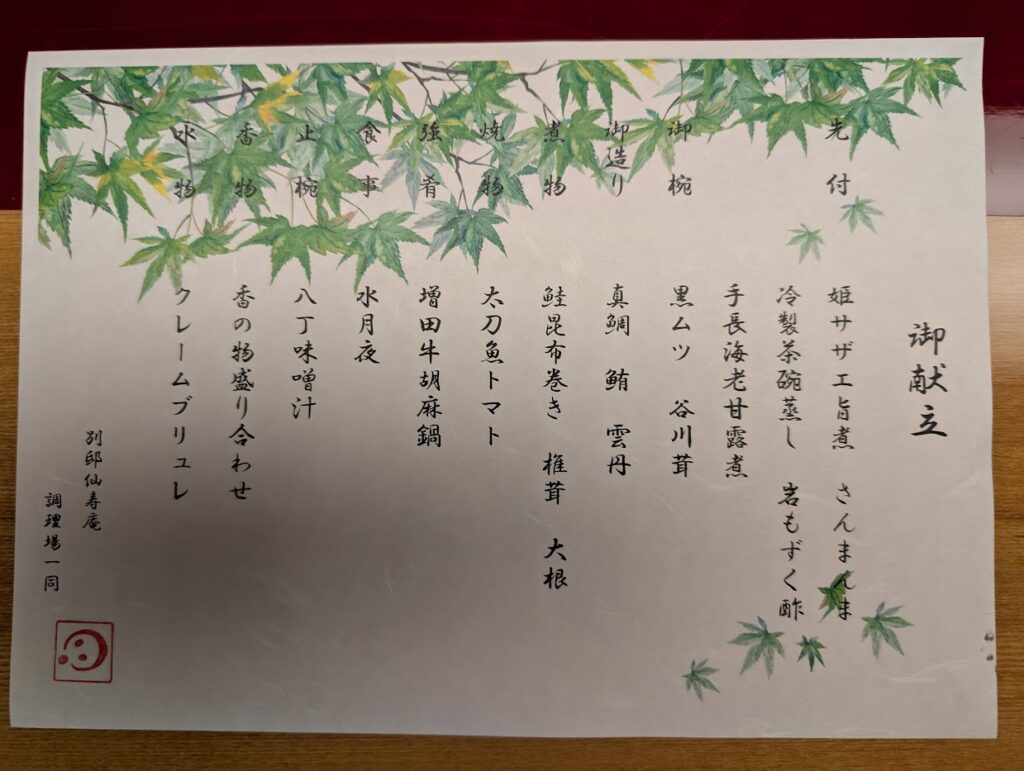 御献立
先付 姫サザエ旨煮 さんまんま
冷製茶碗蒸し 岩もずく酢
手長海老甘露煮
御椀 黒ムツ 谷川茸
御造り 真鯛 鮪 雲丹
煮物 鮭昆布巻き 椎茸 大根
焼物 太刀魚トマト
強肴 増田牛胡麻鍋
食事 水月夜
止椀 八丁味噌汁
香物 香の物盛り合わせ
水物 クレームブリュレ
別邸仙寿庵
調理場一同